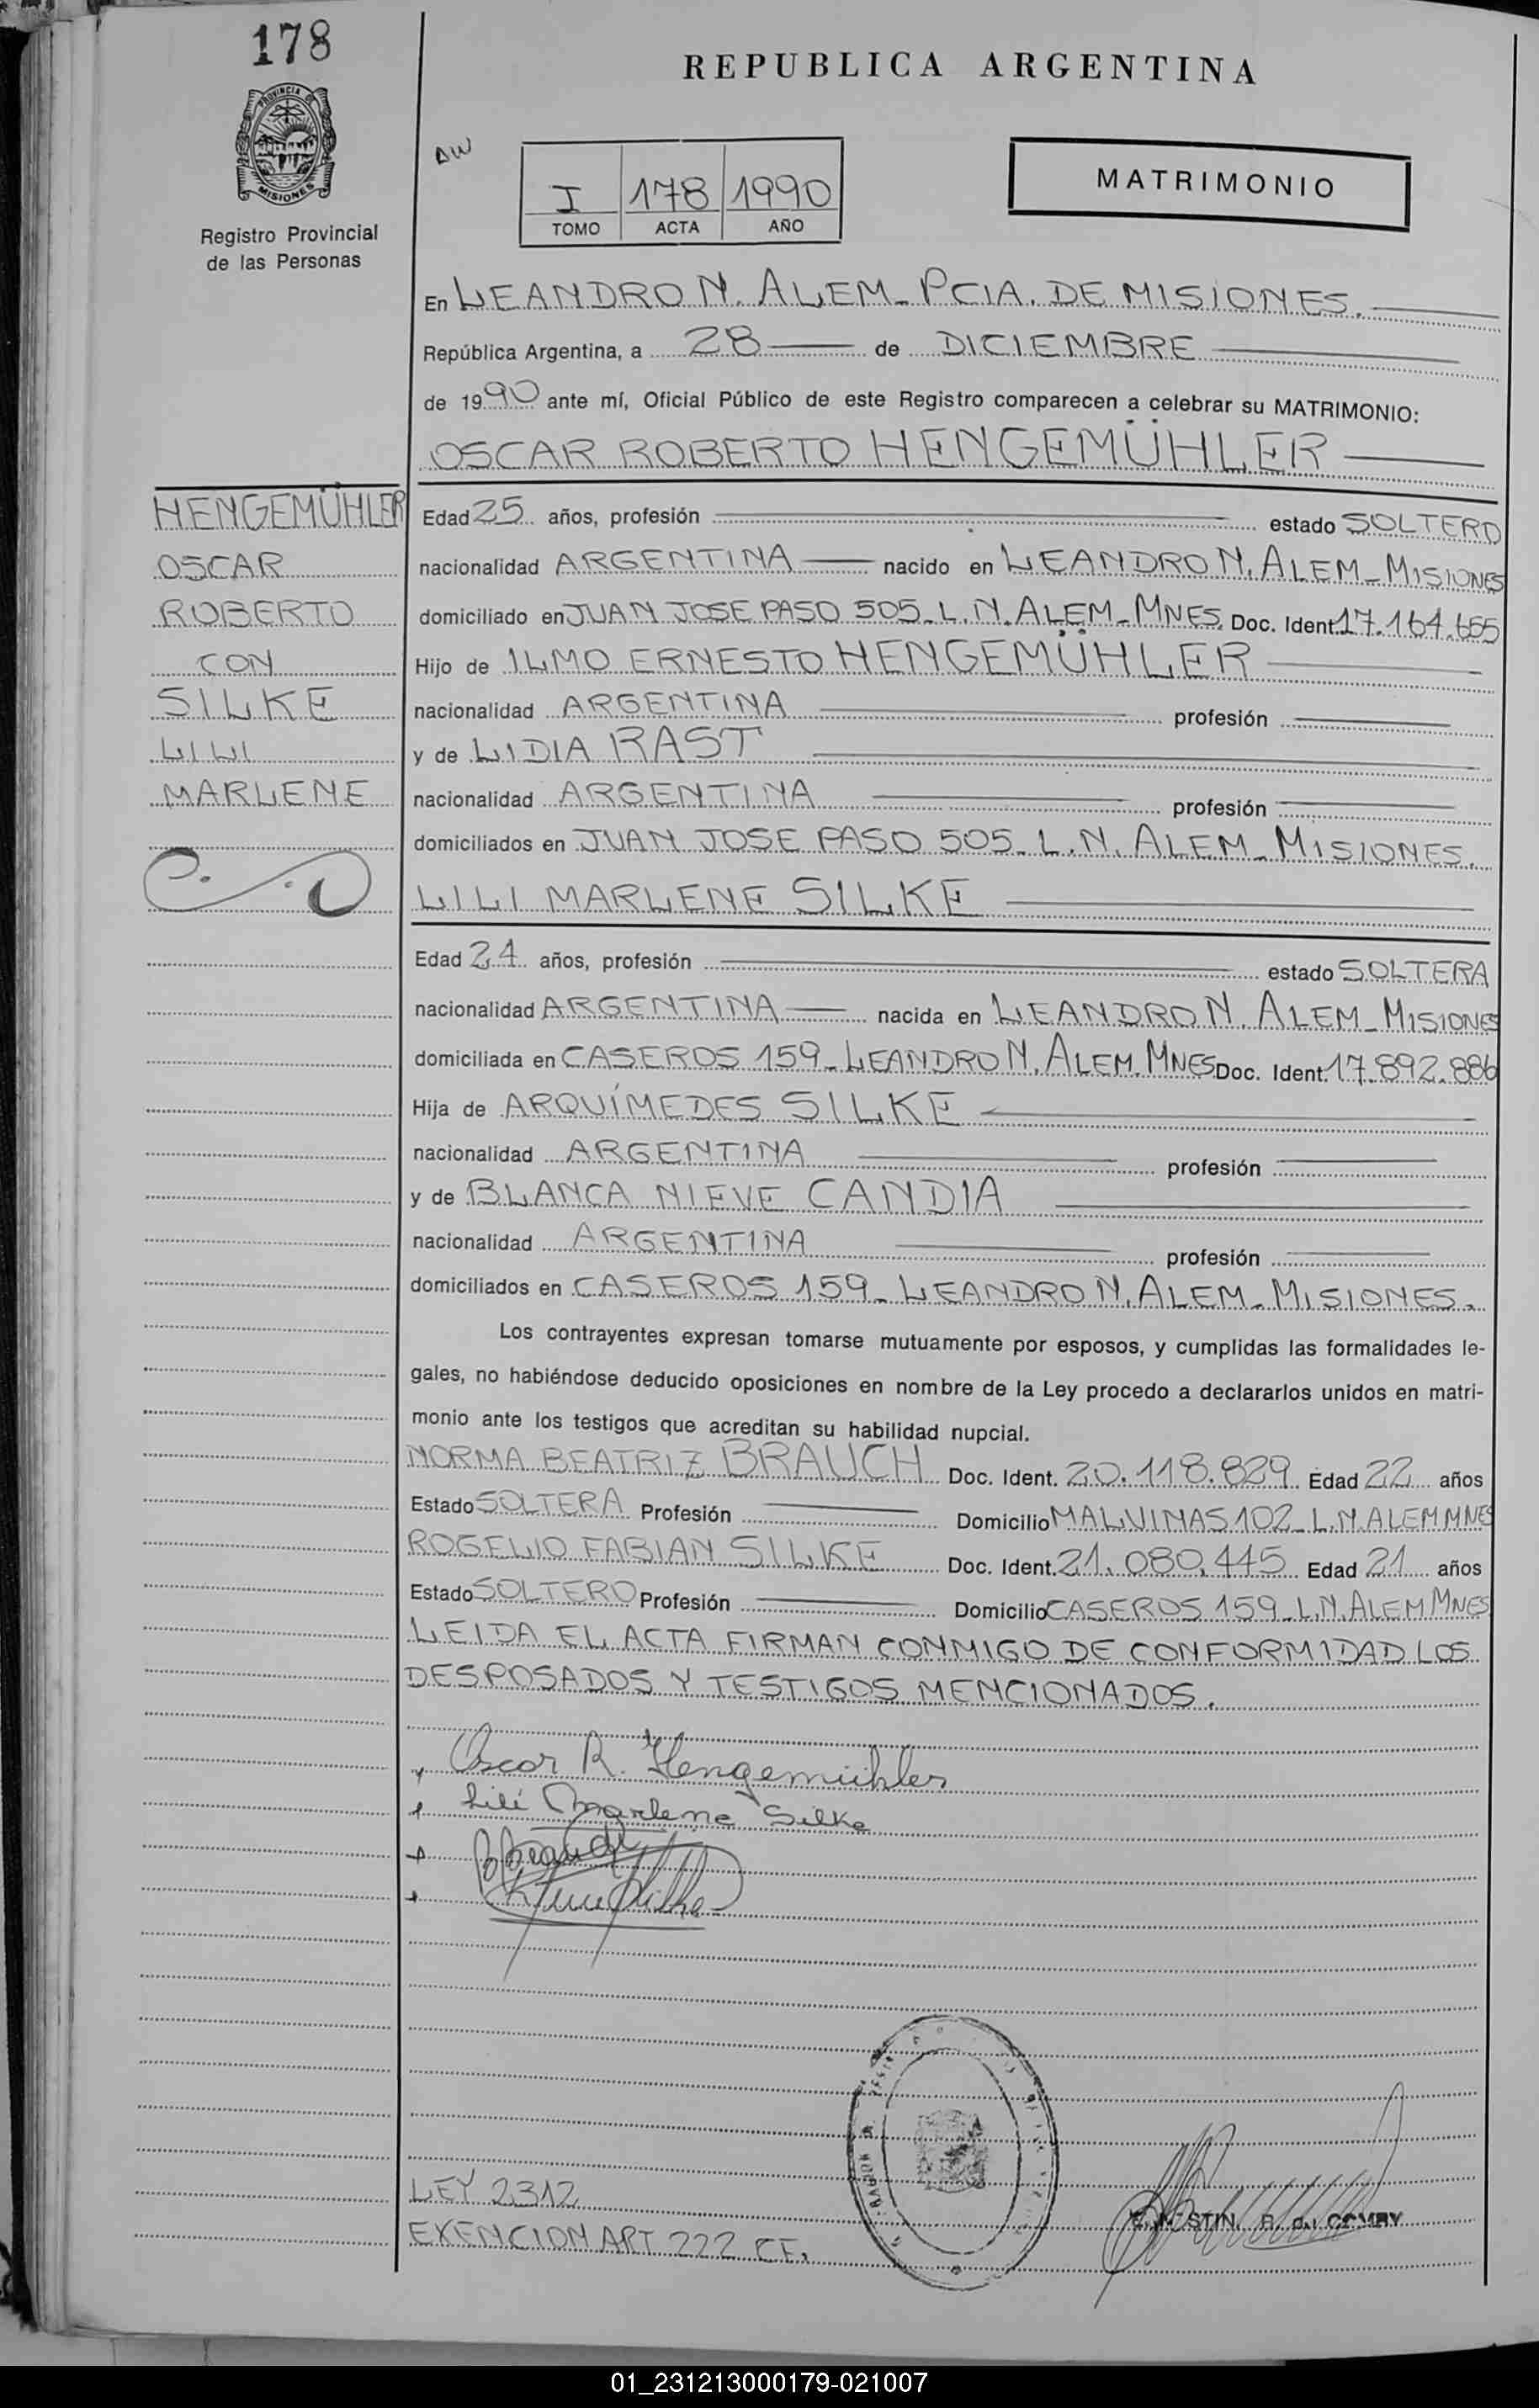 178
PROVINCIA DE
MISIONES
Registro Provincial
de las Personas
REPUBLICA ARGENTINA
AW
I 178 1990
TOMO ACTA AÑO
MATRIMONIO
En LEANDRO N. ALEM_ PCIA. DE MISIONES.
República Argentina, a 28 de DICIEMBRE
de 1990 ante mí, Oficial Público de este Registro comparecen a celebrar su MATRIMONIO:
OSCAR ROBERTO HENGEMÜHLER
HENGEMÜHLER
OSCAR
ROBERTO
CON
SILKE
LILI
MARLENE
Edad 25 años, profesión estado SOLTERO
nacionalidad ARGENTINA nacido en LEANDRO N. ALEM_ MISIONES
domiciliado en JUAN JOSE PASO 505_ L. N. ALEM_ MNES. Doc. Ident. 17.164.655
Hijo de ILMO ERNESTO HENGEMÜHLER
nacionalidad ARGENTINA profesión
y de LIDIA RAST
nacionalidad ARGENTINA profesión
domiciliados en JUAN JOSE PASO 505_ L. N. ALEM_ MISIONES.
LILI MARLENE SILKE
Edad 24 años, profesión estado SOLTERA
nacionalidad ARGENTINA nacida en LEANDRO N. ALEM_ MISIONES
domiciliada en CASEROS 159_ LEANDRO N. ALEM. MNES Doc. Ident. 17.892.886
Hija de ARQUÍMEDES SILKE
nacionalidad ARGENTINA profesión
y de BLANCA NIEVE CANDIA
nacionalidad ARGENTINA profesión
domiciliados en CASEROS 159_ LEANDRO N. ALEM_ MISIONES.
Los contrayentes expresan tomarse mutuamente por esposos, y cumplidas las formalidades le-
gales, no habiéndose deducido oposiciones en nombre de la Ley procedo a declararlos unidos en matri-
monio ante los testigos que acreditan su habilidad nupcial.
NORMA BEATRIZ BRAUCH Doc. Ident. 20.118.829 Edad 22 años
Estado SOLTERA Profesión Domicilio MALVINAS 102_ L.N. ALEM MNES
ROGELIO FABIAN SILKE Doc. Ident. 21.080.445 Edad 21 años
Estado SOLTERO Profesión Domicilio CASEROS 159_ L.N. ALEM MNES
LEIDA EL ACTA FIRMAN CONMIGO DE CONFORMIDAD LOS
DESPOSADOS Y TESTIGOS MENCIONADOS.
Oscar R. Hengemühler
Lili Marlene Silke
LEY 2312
EXENCION ART 222 CF.
01_231213000179-021007